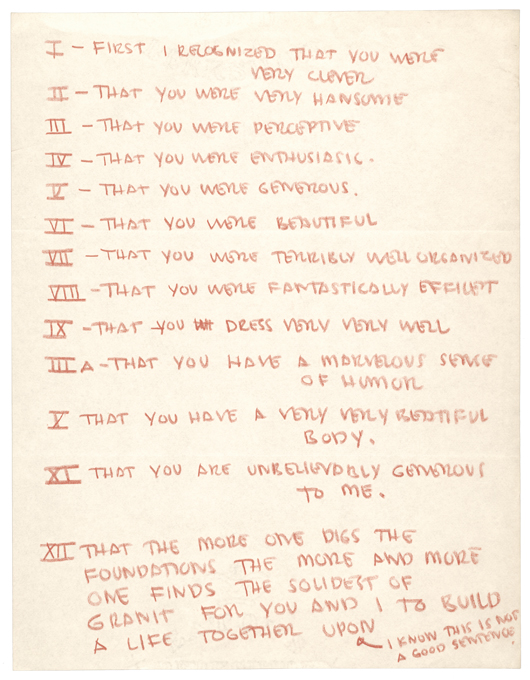 I - FIRST I RECOGNIZED THAT YOU WERE
VERY CLEVER
II - THAT YOU WERE VERY HANSOME
III - THAT YOU WERE PERCEPTIVE
IV - THAT YOU WERE ENTHUSIASIC.
V - THAT YOU WERE GENEROUS.
VI - THAT YOU WERE BEAUTIFUL
VII - THAT YOU WERE TERRIBLY WELL ORGANIZED
VIII - THAT YOU WERE FANTASTICALLY EFFICENT
IX - THAT YOU DRESS VERY VERY WELL
III A - THAT YOU HAVE A MARVELOUS SENSE
OF HUMOR
X THAT YOU HAVE A VERY VERY BEATIFUL
BODY.
XI THAT YOU ARE UNBELIEVABLY GENEROUS
TO ME.
XII THAT THE MORE ONE DIGS THE
FOUNDATIONS THE MORE AND MORE
ONE FINDS THE SOLIDEST OF
GRANIT FOR YOU AND I TO BUILD
A LIFE TOGETHER UPON
I KNOW THIS IS NOT
A GOOD SENTENCE.